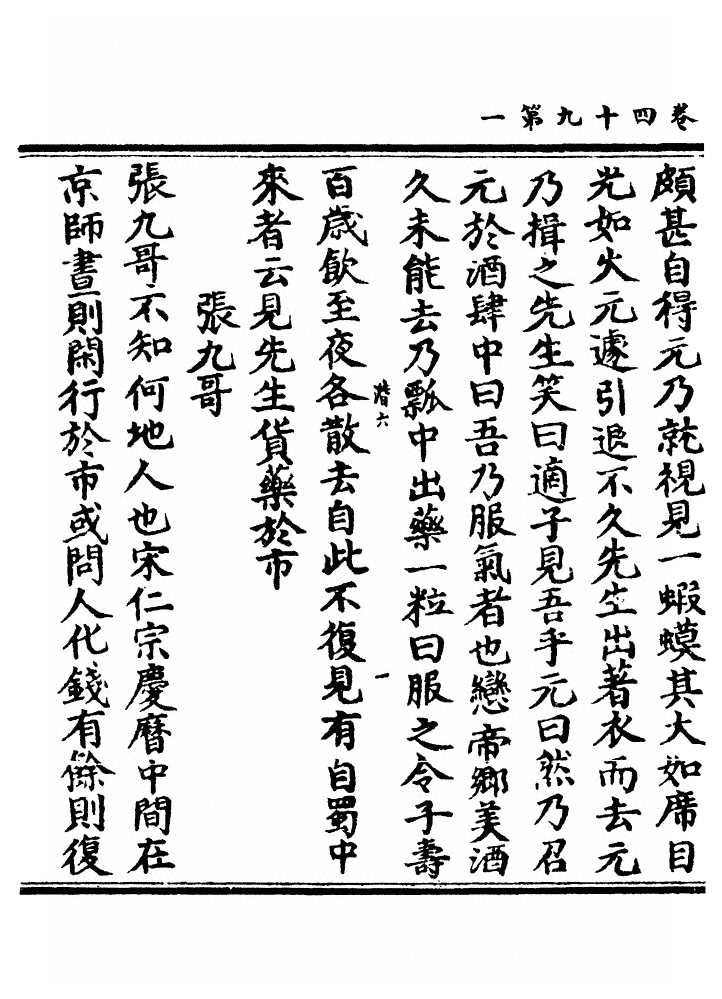 卷四十九第一
頗甚自得元乃就視見一蝦蟆其大如席目
光如火元遽引退不久先生出著衣而去元
乃揖之先生笑曰適子見吾乎元曰然乃召
元於酒肆中曰吾乃服氣者也戀帝鄉美酒
久未能去乃瓢中出藥一粒曰服之令子壽
潛六 一
百歲飲至夜各散去自此不復見有自蜀中
來者云見先生貨藥於市
張九哥
張九哥不知何地人也宋仁宗慶曆中間在
京師晝則閑行於市或問人化錢有餘則復